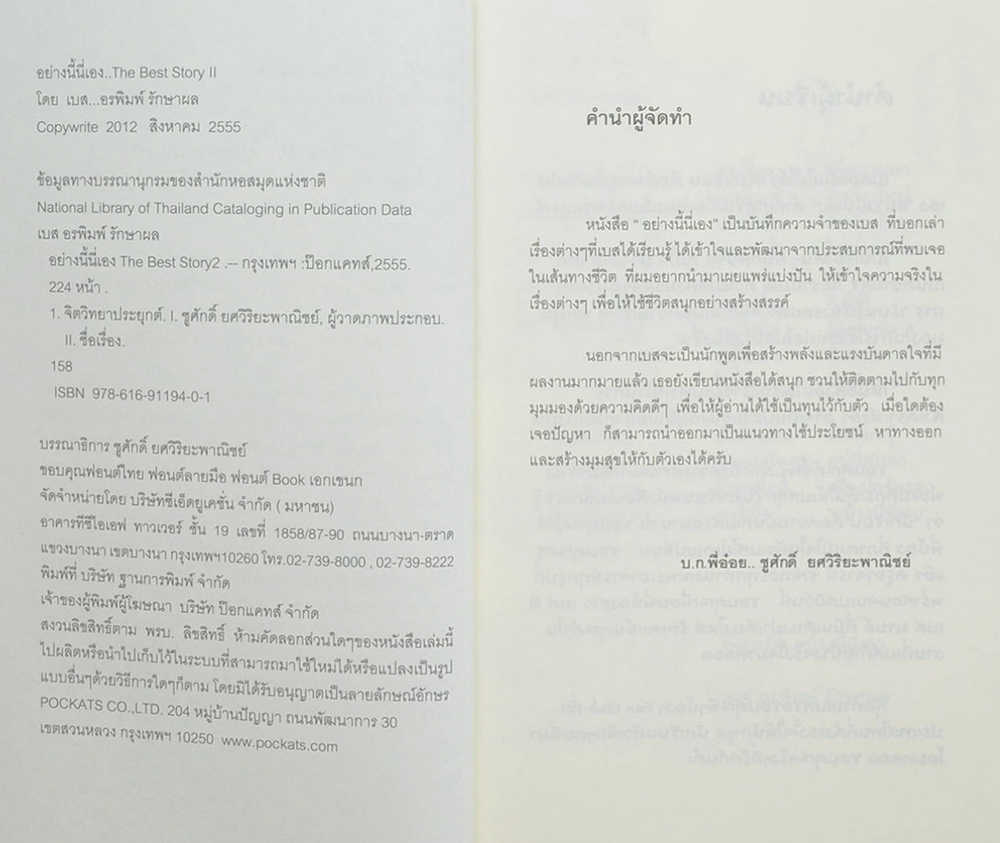 อย่างนี้นี่เอง..The Best Story II
โดย เบส...อรพิมพ์ รักษาผล
Copywrite 2012 สิงหาคม 2555
ข้อมูลทางบรรณานุกรมของสำนักหอสมุดแห่งชาติ
National Library of Thailand Cataloging in Publication Data
เบส อรพิมพ์ รักษาผล
อย่างนี้นี่เอง The Best Story2 .-- กรุงเทพฯ :ป๊อกแคทส์,2555.
224 หน้า .
1. จิตวิทยาประยุกต์. I. ชูศักดิ์ ยศวิริยะพาณิชย์, ผู้วาดภาพประกอบ.
II. ชื่อเรื่อง.
158
ISBN 978-616-91194-0-1
บรรณาธิการ ชูศักดิ์ ยศวิริยะพาณิชย์
ขอบคุณฟอนต์ไทย ฟอนต์ลายมือ ฟอนต์ Book เอกเขนก
จัดจำหน่ายโดย บริษัทซีเอ็ดยูเคชั่น จำกัด ( มหาชน)
อาคารทีซีไอเอฟ ทาวเวอร์ ชั้น 19 เลขที่ 1858/87-90 ถนนบางนา-ตราด
แขวงบางนา เขตบางนา กรุงเทพฯ10260 โทร.02-739-8000 , 02-739-8222
พิมพ์ที่ บริษัท ฐานการพิมพ์ จำกัด
เจ้าของผู้พิมพ์ผู้โฆษณา บริษัท ป๊อกแคทส์ จำกัด
สงวนลิขสิทธิ์ตาม พรบ. ลิขสิทธิ์ ห้ามคัดลอกส่วนใดๆของหนังสือเล่มนี้
ไปผลิตหรือนำไปเก็บไว้ในระบบที่สามารถมาใช้ใหม่ได้หรือแปลงเป็นรูป
แบบอื่นๆด้วยวิธีการใดๆก็ตาม โดยมิได้รับอนุญาตเป็นลายลักษณ์อักษร
POCKATS CO.,LTD. 204 หมู่บ้านปัญญา ถนนพัฒนาการ 30
เขตสวนหลวง กรุงเทพฯ 10250 www.pockats.com
คำนำผู้จัดทำ
หนังสือ " อย่างนี้นี่เอง" เป็นบันทึกความจำของเบส ที่บอกเล่า
เรื่องต่างๆที่เบสได้เรียนรู้ ได้เข้าใจและพัฒนาจากประสบการณ์ที่พบเจอ
ในเส้นทางชีวิต ที่ผมอยากนำมาเผยแพร่แบ่งปัน ให้เข้าใจความจริงใน
เรื่องต่างๆ เพื่อให้ใช้ชีวิตสนุกอย่างสร้างสรรค์
นอกจากเบสจะเป็นนักพูดเพื่อสร้างพลังและแรงบันดาลใจที่มี
ผลงานมากมายแล้ว เธอยังเขียนหนังสือได้สนุก ชวนให้ติดตามไปกับทุก
มุมมองด้วยความคิดดีๆ เพื่อให้ผู้อ่านได้ใช้เป็นทุนไว้กับตัว เมื่อใดต้อง
เจอปัญหา ก็สามารถนำออกมาเป็นแนวทางใช้ประโยชน์ หาทางออก
และสร้างมุมสุขให้กับตัวเองได้ครับ
บ.ก.พี่อ๋อย.. ชูศักดิ์ ยศวิริยะพาณิชย์